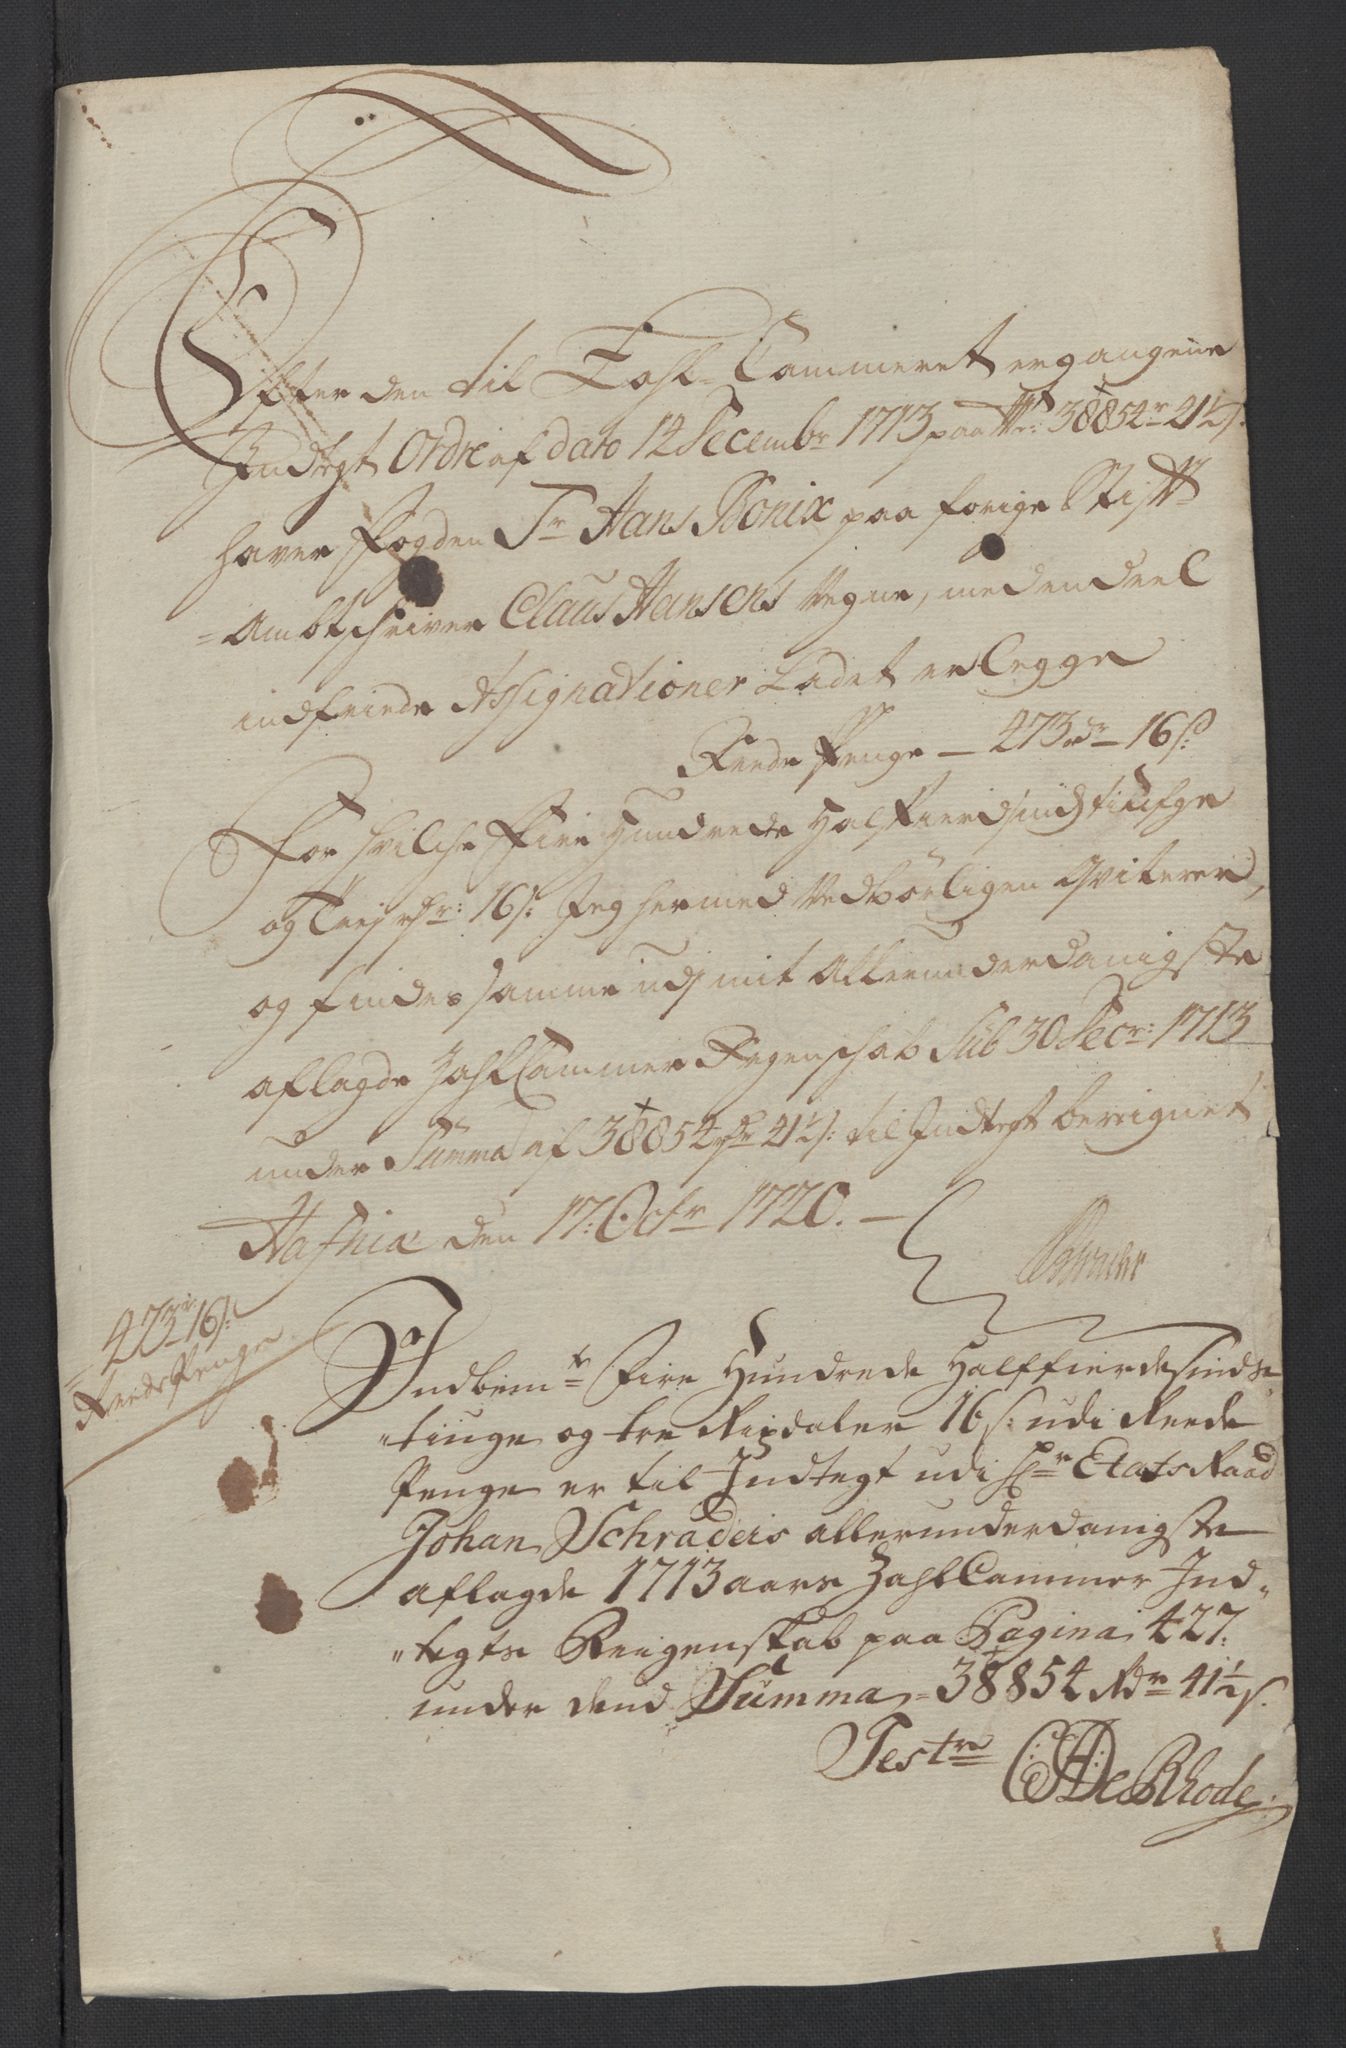 Efter den til Zahl-Cammeret ergangene
Indtegt Ordre af dato 12 Decembr 1713 paa 38854 41½ s.
haver Fogden Sr Hans Bonix paa forige Stift
=Ambtschriver Claus Hansens Vegne, med en deel
indfriede Assignationer Ladet erlegge
Reede Penge — 473 rdr 16 s:
For hvilche Fire Hundrede Halffierdsinds tiufge
og Trej rdr: 16 s: Jeg hermed Vedbörligen qviterer,
og findes samme udj mit Allerunderdanigste
aflagde ZahlCammer Regenschab Sub 30 Decr: 1713
under Summa af 38854 rdr 41½ s: til Indtegt beregnet
Hafniæ den 17: Octr 1720. —
473 r 16 s:
Reede Penge
Indbemte Fire Hundrede Halffierdesinds
"tiuge og tre Rixdaler 16 s: udi Reede
Penge er til Indtegt udi Hr Etats Raad
Johan Schraders allerunderdanigste
aflagde 1713 aars ZahlCammer Ind"
"tegts Reigenskab paa Pagina 427:
under dend Summa = 38854 Rdr 41½ s.
Testr CADeRhode